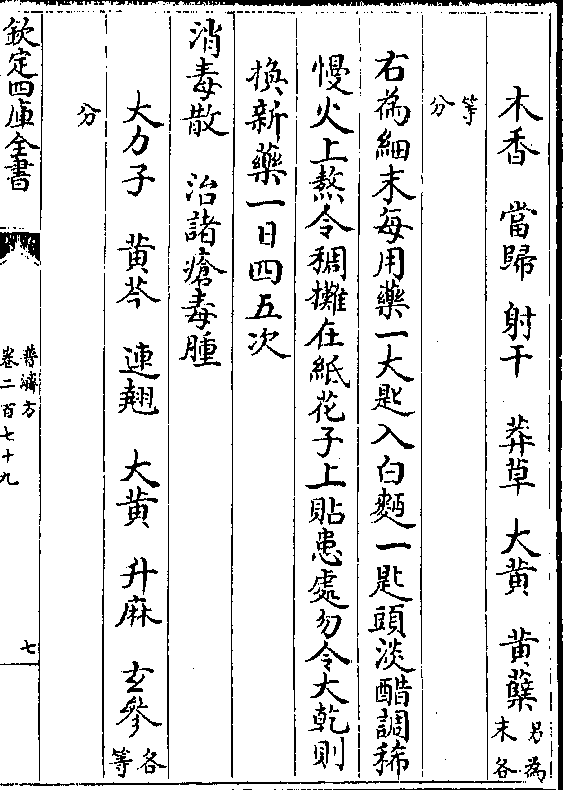 木香 當歸 射干 莽草 大黄 黄蘗另為末各
等分
右為細末每用藥一大匙入白麪一匙頭淡醋調稀
慢火上熬令稠攤在紙花子上貼患處勿令大乾則
換新藥一日四五次
消毒散 治諸瘡毒腫
大力子 黄芩 連翹 大黄 升麻 玄參各等
分
欽定四庫全書
普濟方
卷二百七十九
七